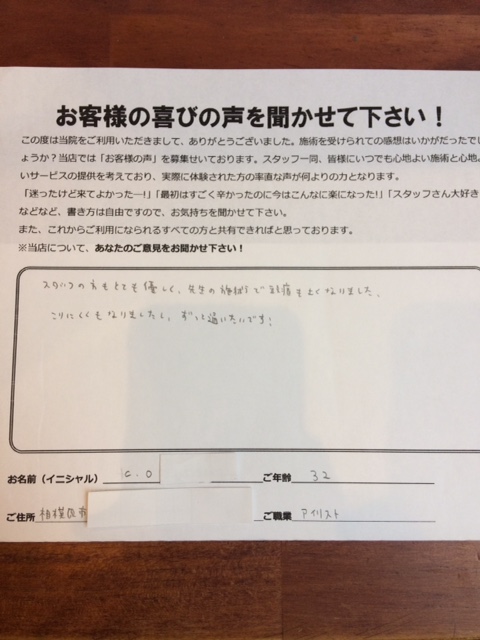 お客様の喜びの声を聞かせて下さい!
この度は当院をご利用いただきまして、ありがとうございました。施術を受けられての感想はいかがだったでし
ょうか?当店では「お客様の声」を募集せいております。スタッフ一同、皆様にいつでも心地よい施術と心地よ
いサービスの提供を考えており、実際に体験された方の率直な声が何よりの力となります。
「迷ったけど来てよかったー!」「最初はすごく辛かったのに今はこんなに楽になった!」「スタッフさん大好き
などなど、書き方は自由ですので、お気持ちを聞かせて下さい。
また、これからご利用になられるすべての方と共有できればと思っております。
※当店について、あなたのご意見をお聞かせ下さい!
スタッフの方もとても優しく、先生の施術で頭痛もよくなりました。
こりにくくもなりましたし、ずっと通いたいです!
お名前(イニシャル) K.O ご年齢 32
ご住所 相模原市 ご職業 アイリスト